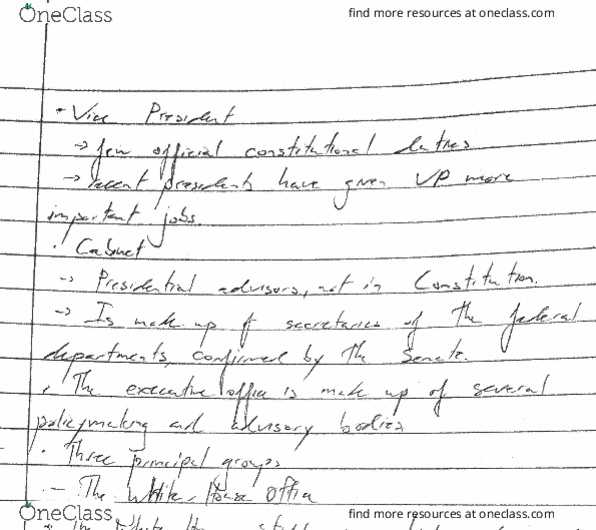 OneClass find more resources at oneclass.com
• Vice President
→ few official constitutional duties
→ recent presidents have given VP more
important jobs.
• Cabinet
→ Presidential advisors, not in Constitution.
→ Is made up of secretaries of the federal
departments, confirmed by the Senate.
• The executive office is made up of several
policymaking and advisory bodies
• Three principal groups
– The White House Office
OneClass find more resources at oneclass.com